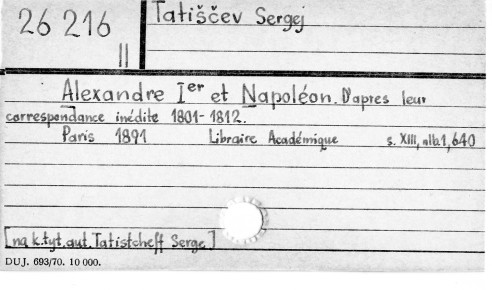 26 216
II
Tatiščev Sergej
Alexandre Ier et Napoléon. D'apres leur
correspondance inédite 1801-1812.
Paris 1891 Libraire Académique s. XIII, nlb.1, 640
[na k.tyt. aut. Tatistcheff Serge]
DUJ. 693/70. 10 000.